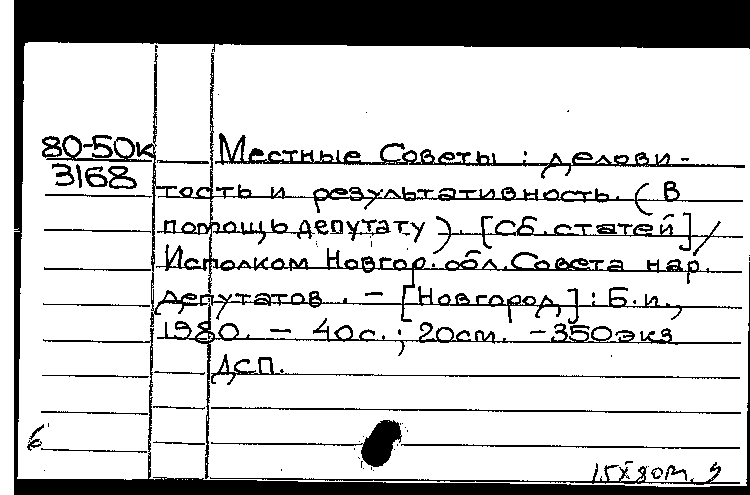 80-50к
3168
Местные Советы : делови-
тость и результативность. (В
помощь депутату). [Сб. статей] /
Исполком Новгор. обл. Совета нар.
депутатов. - [Новгород] : Б.и.,
1980. - 40с. ; 20см. - 350экз
ДСП.
6